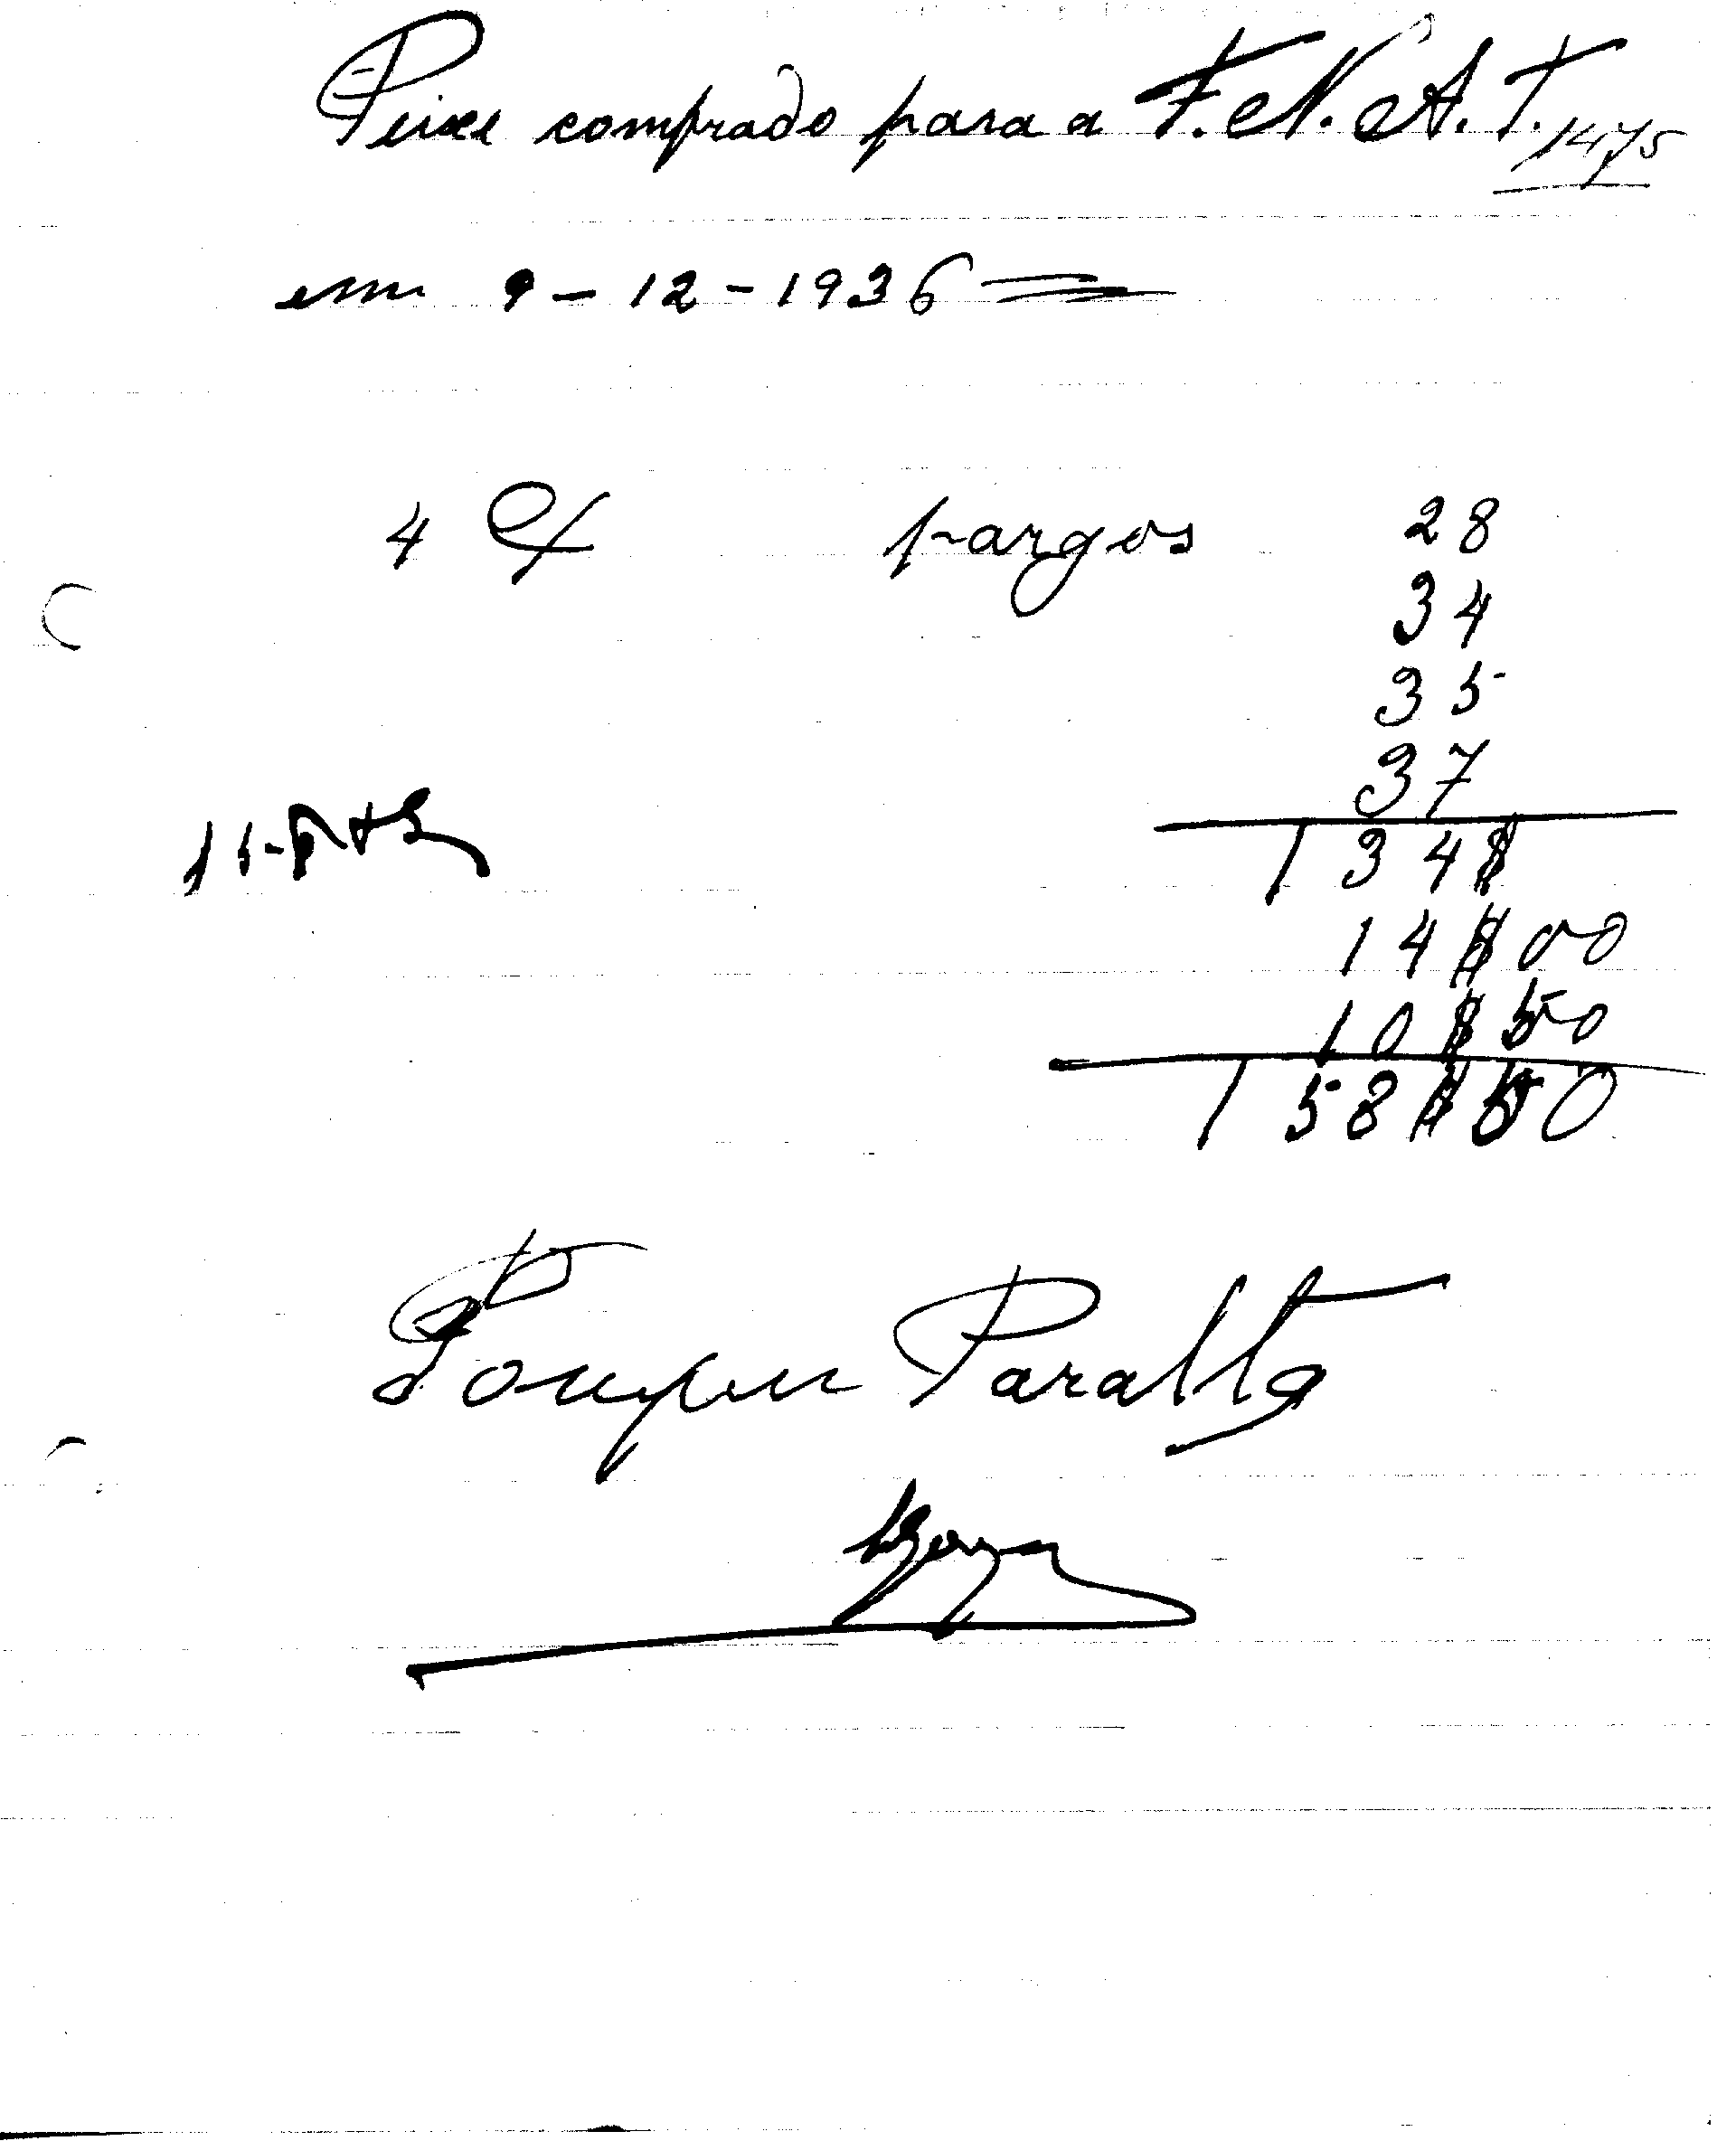 Peixe comprado para a F. N. A. T.
1475
em 9 - 12 - 1936
4 pargos 28
34
35
37
134$
14$00
10$50
158$50
Paralta